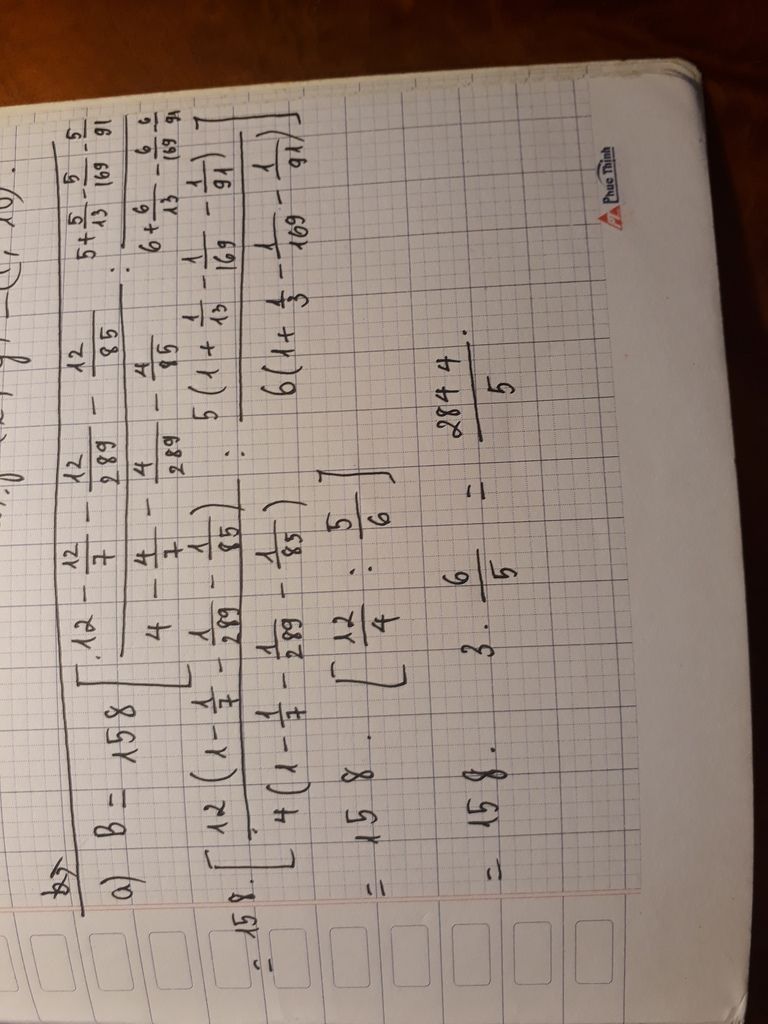 a) B = 158 [ (12 - 12/7 - 12/289 - 12/85) / (4 - 4/7 - 4/289 - 4/85) : (5 + 5/13 - 5/169 - 5/91) / (6 + 6/13 - 6/169 - 6/91)
= 158. [ 12 (1 - 1/7 - 1/289 - 1/85) / 4 (1 - 1/7 - 1/289 - 1/85) : 5 (1 + 1/13 - 1/169 - 1/91) / 6 (1 + 1/3 - 1/169 - 1/91) ]
= 158 . [ 12/4 : 5/6 ]
= 158. 3. 6/5 = 2844/5 .
Phuc Thinh